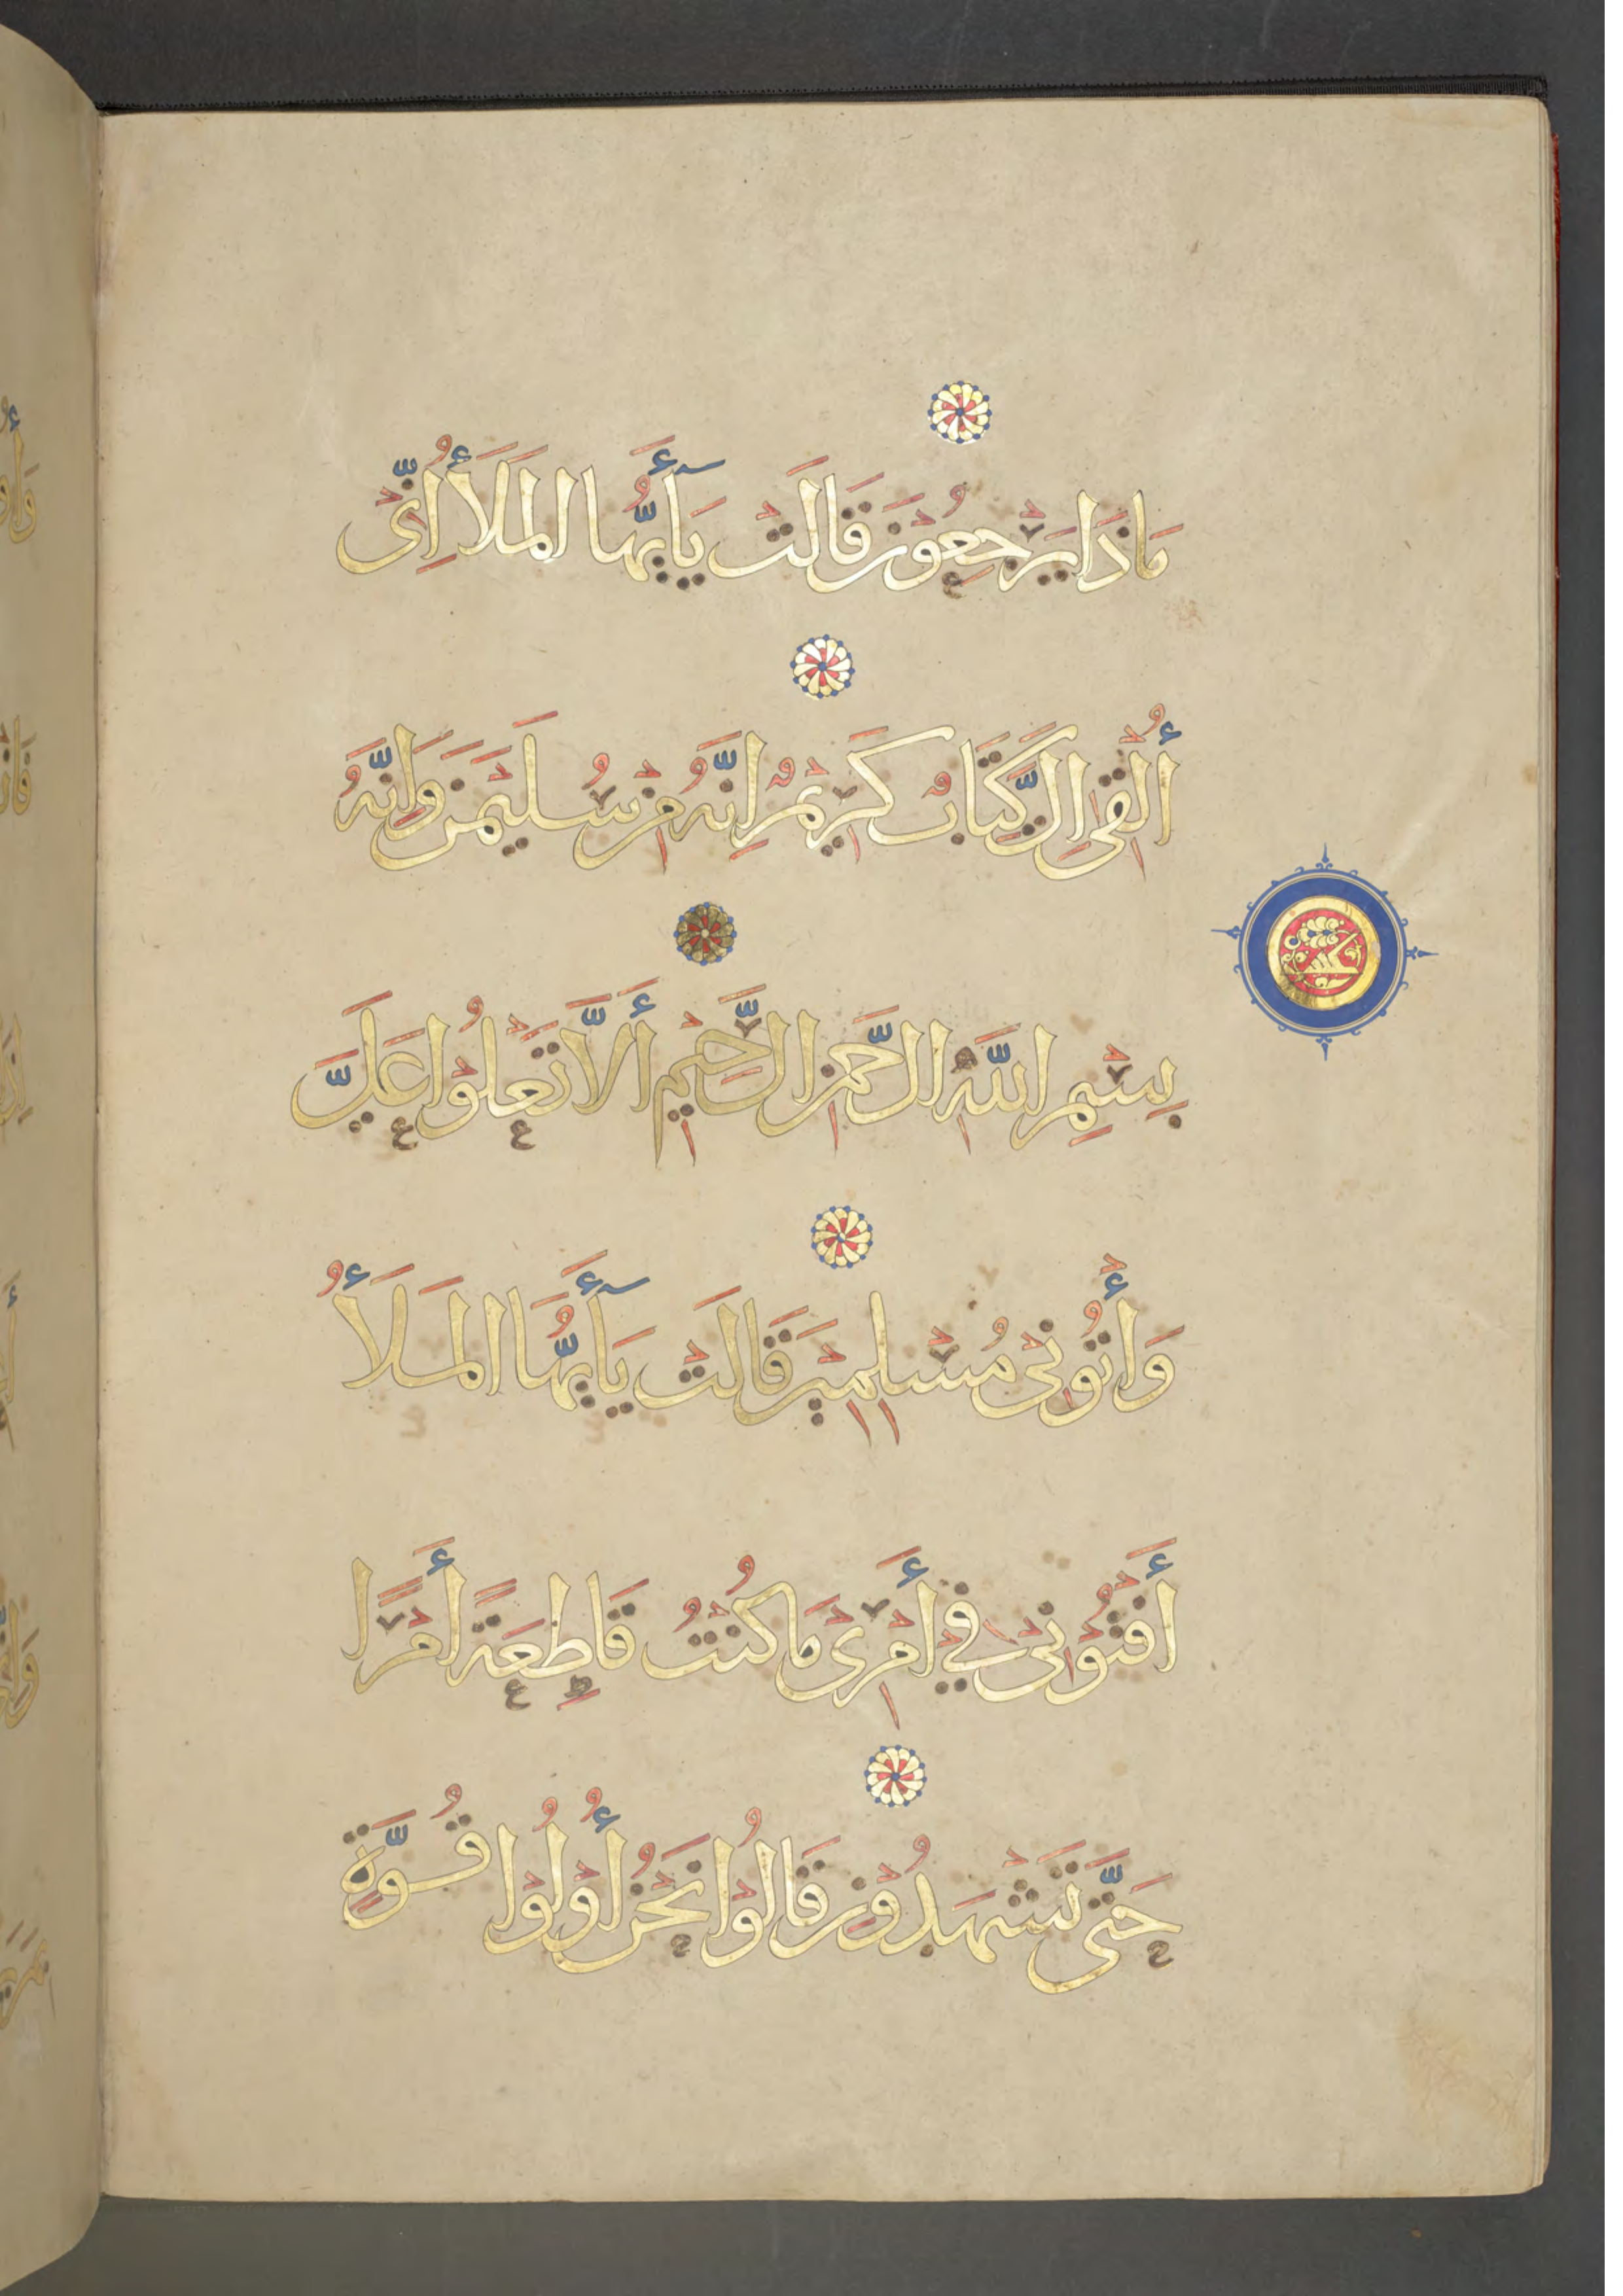 مَاذَا يَرْجِعُونَ قَالَتْ يَٓأَيُّهَا الْمَلَأُ إِنِّى
أُلْقِىَ إِلَىَّ كِتَابٌ كَرِيمٌ إِنَّهُ مِنْ سُلَيْمَنَ وَإِنَّهُ
بِسْمِ اللَّهِ الرَّحْمَنِ الرَّحِيمِ أَلَّا تَعْلُوْا عَلَىَّ
وَأْتُونِى مُسْلِمِينَ قَالَتْ يَٓأَيُّهَا الْمَلَأُ
أَفْتُوْنِى فِي أَمْرِى مَا كُنْتُ قَاطِعَةً أَمْرًا
حَتَّى تَشْهَدُوْنِ قَالُوْا نَحْنُ أُوْلُوْا قُوَّةٍ